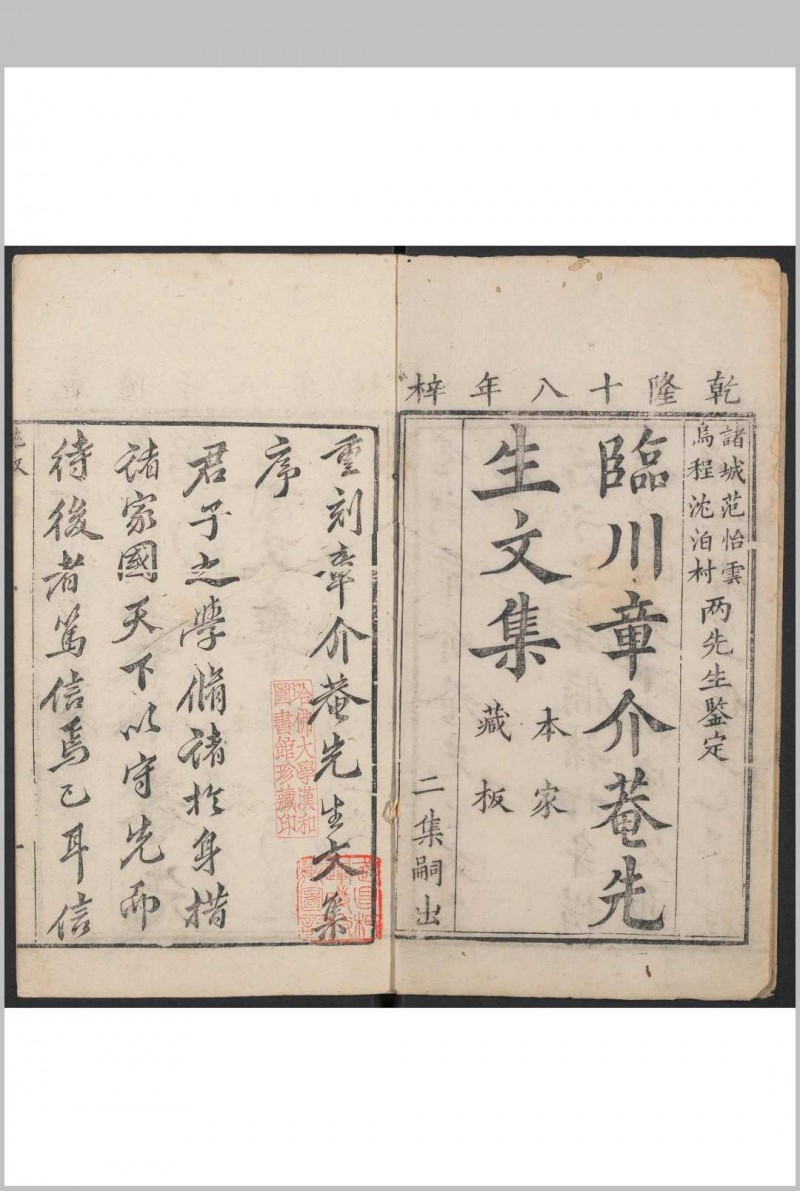 乾隆十八年梓
諸城范怡雲
烏程沈泊村
两先生鉴定
臨川章介菴先
生文集
本家
藏板
二集嗣出
重刻章介菴先生文集
序
君子之學脩諸於身措
諸家國天下以守先而
待後者篤信焉已耳信
哈佛大學漢和
圖書館珍藏印